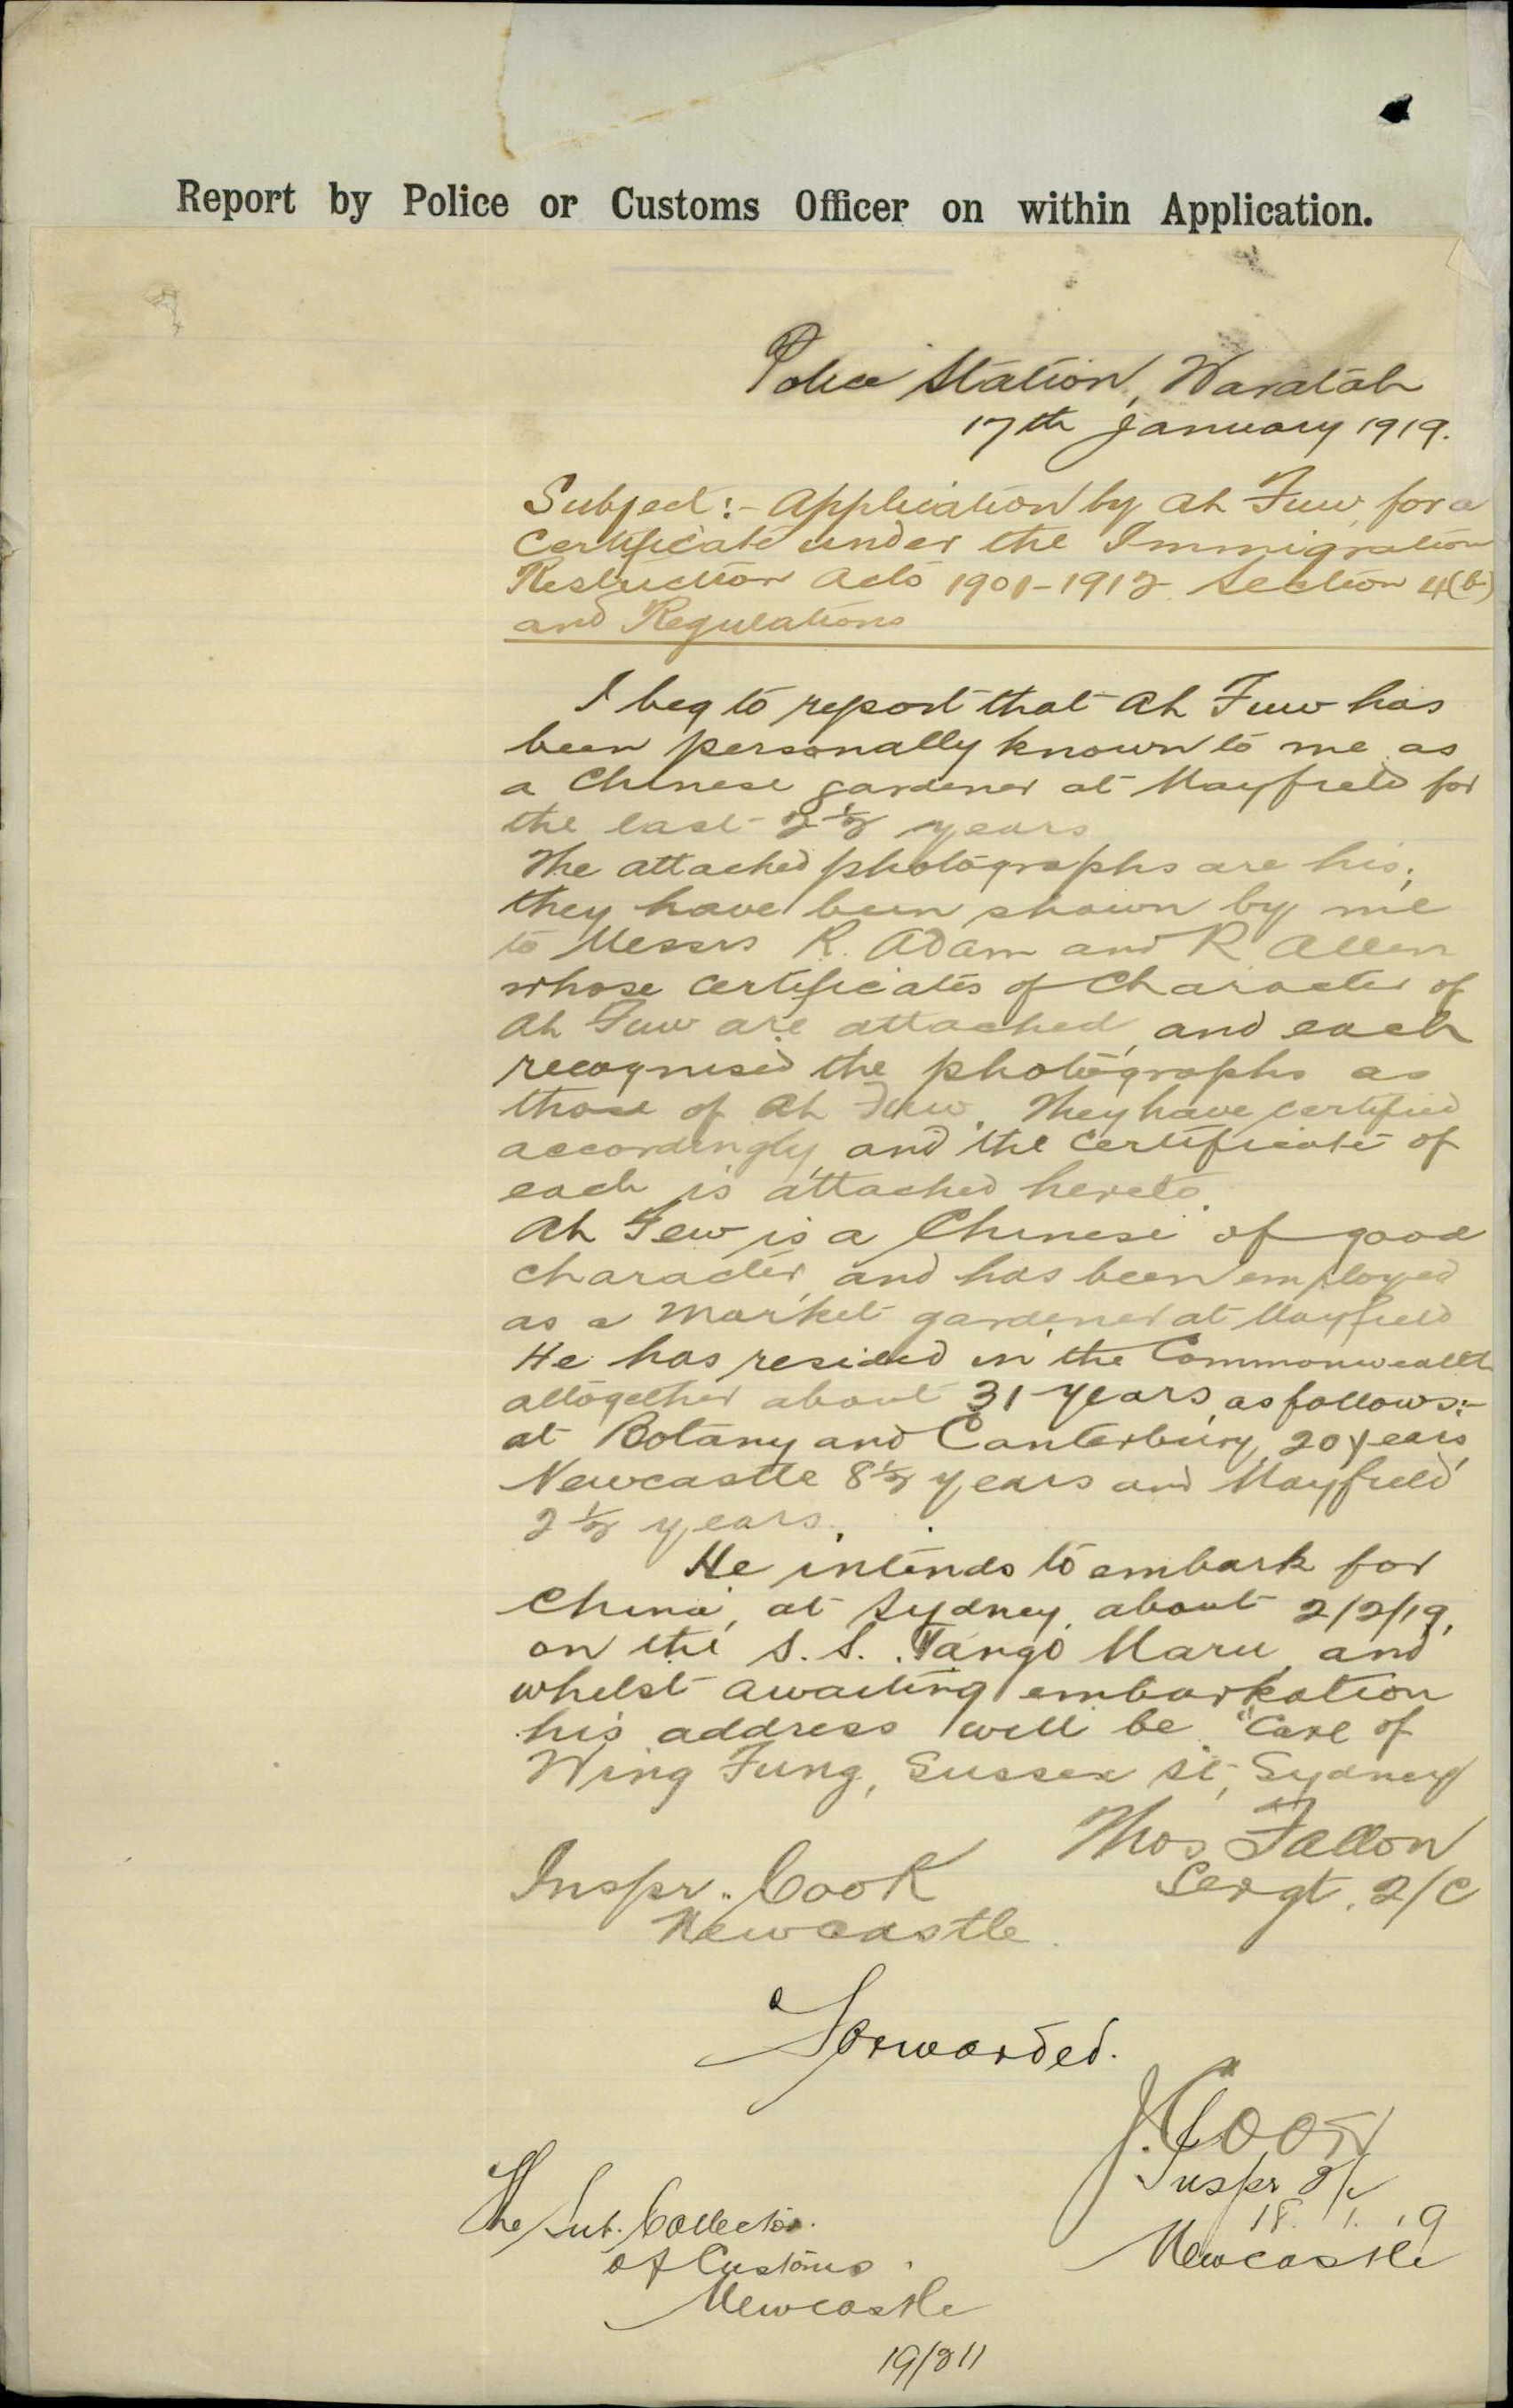 Report by Police or Customs Officer on within Application.
Police Station, Waratah
17th January 1919.
Subject:- Application by Ah Fuw, for a
Certificate under the Immigration
Restriction Acts 1901-1912. Section 4(b)
and Regulations
I beg to report that Ah Fuw has
been personally known to me as
a Chinese gardener at Mayfield for
the last 2½ years
The attached photographs are his;
they have been shown by me
to Messrs R. Adam and R Allen
whose certificates of Character of
Ah Fuw are attached, and each
recognised the photographs as
those of Ah Fuw. They have certified
accordingly, and the certificate of
each is attached hereto.
Ah Few is a Chinese of good
character, and has been employed
as a Market gardener at Mayfield
He has resided in the Commonwealth
altogether about 31 years, as follows:-
at Botany and Canterbury, 20 years,
Newcastle 8½ years and Mayfield
2½ years.
He intends to embark for
China, at Sydney, about 2/2/19,
on the S.S. Tango Maru, and
whilst awaiting embarkation
his address will be "Care of
Wing Fung, Sussex St, Sydney
Thos Fallon
Sergt. 2/C
Inspr. Cook
Newcastle.
Forwarded.
J. Cook
Inspr
18. 1. 19
Newcastle
The Sub. Collector.
of Customs.
Newcastle
19/211